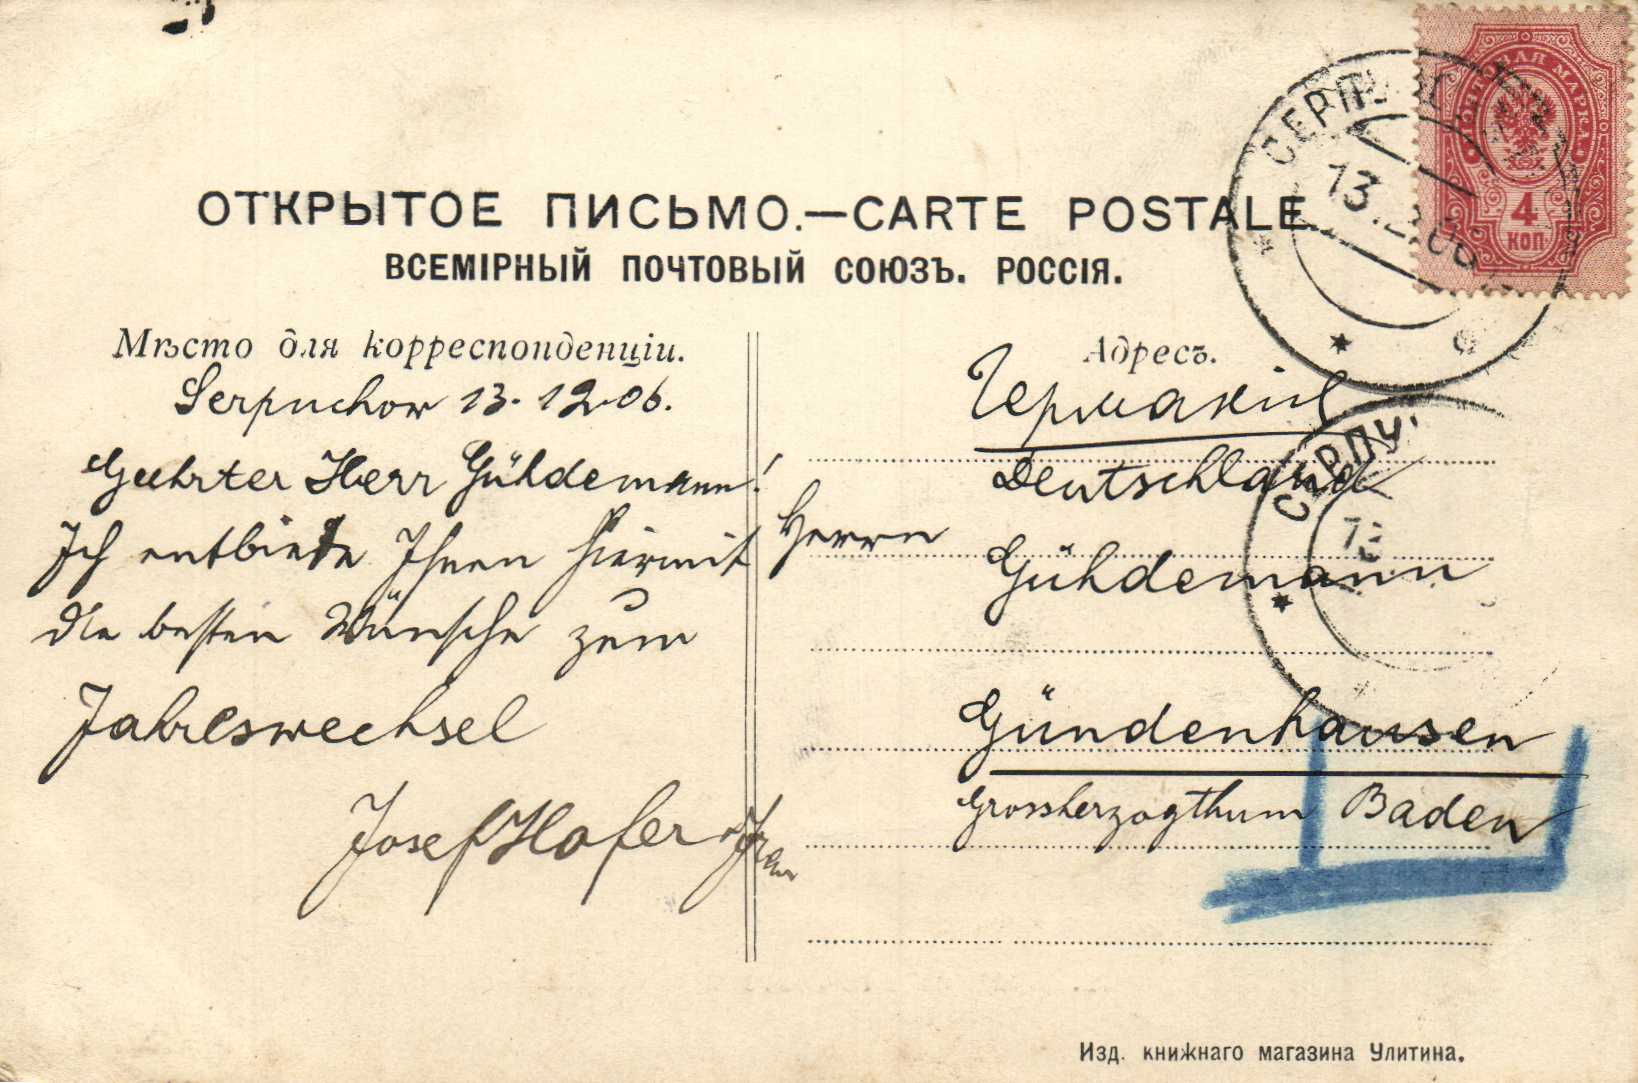 ОТКРЫТОЕ ПИСЬМО.—CARTE POSTALE.
ВСЕМІРНЫЙ ПОЧТОВЫЙ СОЮЗЪ. РОССІЯ.
Мѣсто для корреспонденціи.
Serpuchow 13. 12.06.
Geehrter Herr Gühdemann!
Ich entbiete Ihnen hiermit
die besten Wünsche zum
Jahreswechsel
Josef Hofer u Frau
Адресъ.
Германія
Deutschland
Herrn
Gühdemann
Gündenhausen
Grossherzogthum Baden
ПОЧТОВАЯ МАРКА
4
КОП
СЕРПУХ
13.12.06
СЕРПУ
13
Изд. книжнаго магазина Улитина.